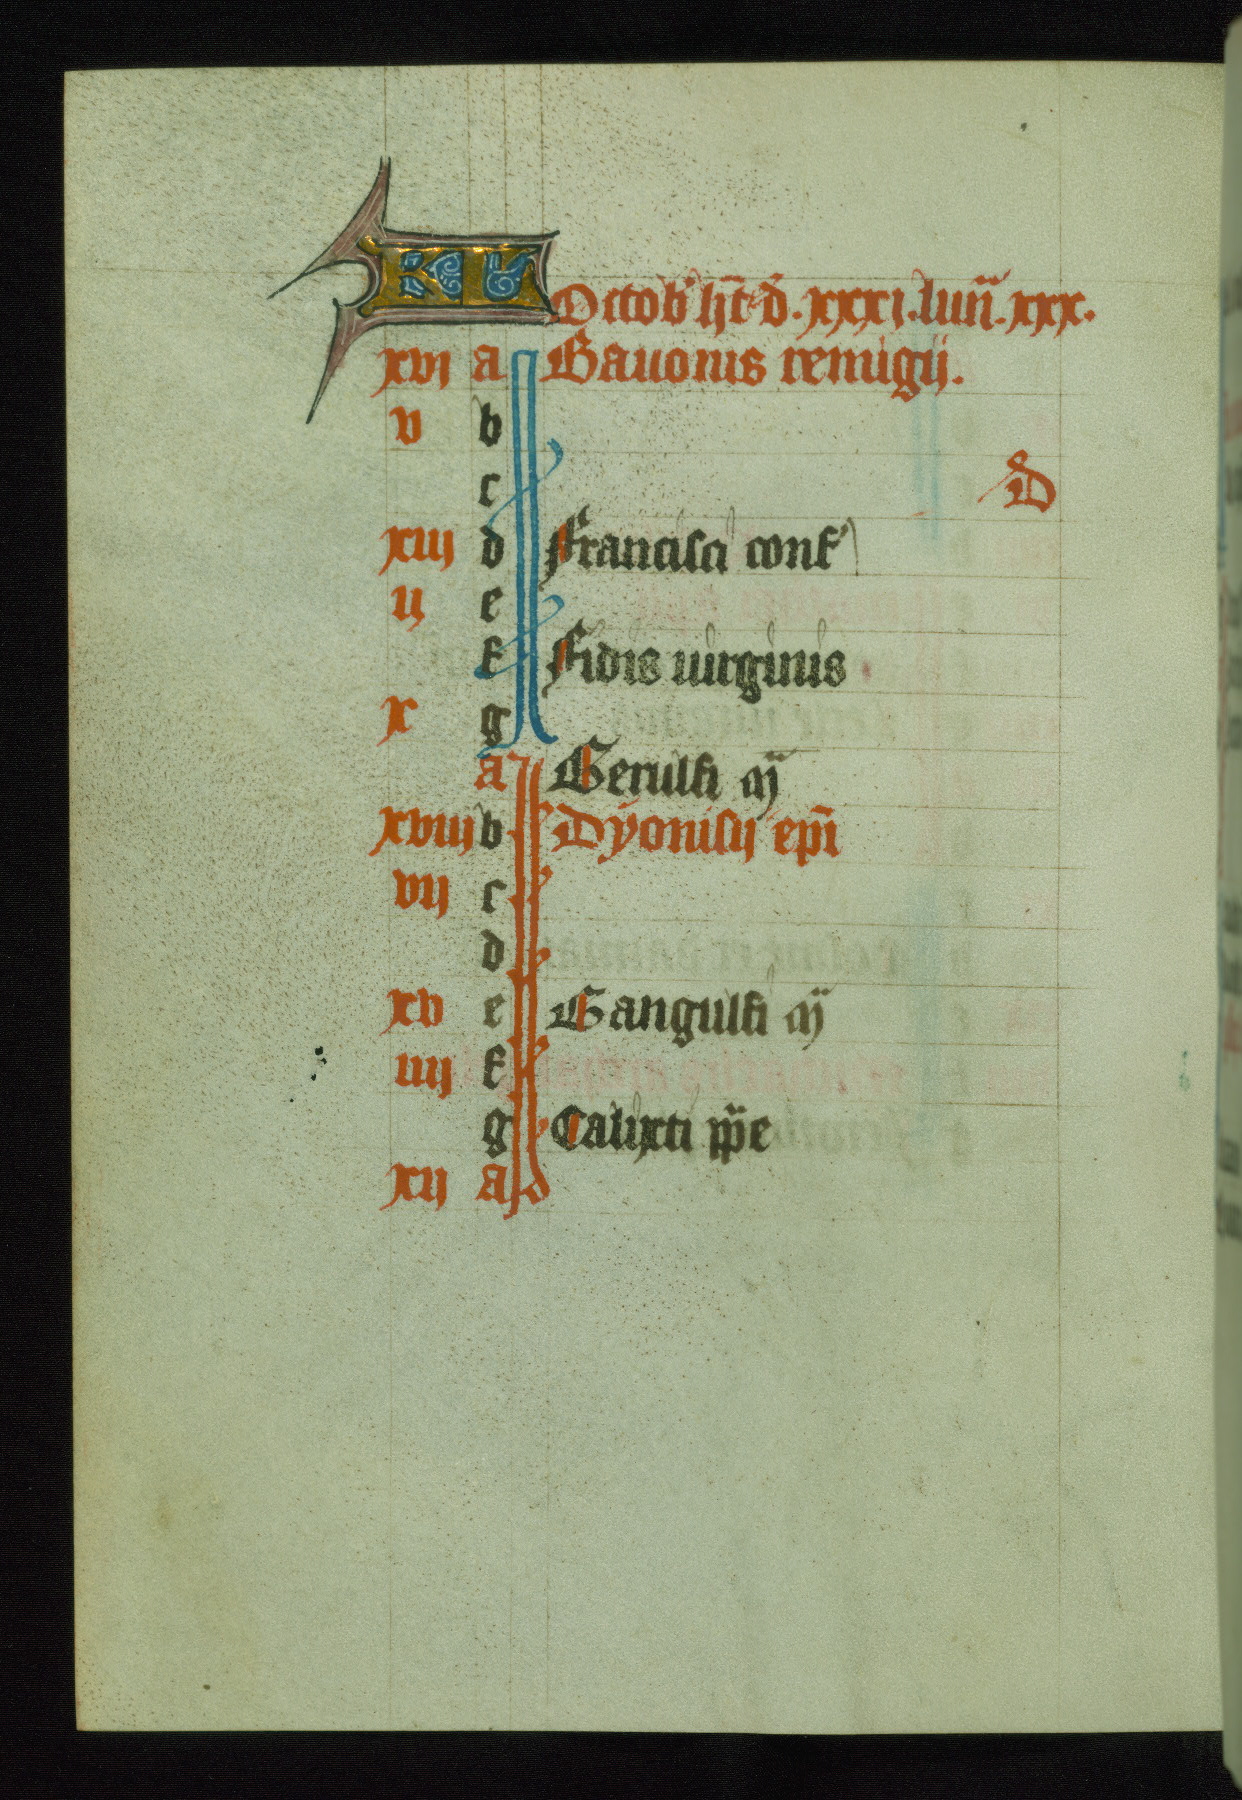 KL Octob' h̄t d̄. xxxi. lun̄. xxx.
xvi a Bauonis remigij.
v b
c D
xiii d Francisci conf'
ii e
f Fidis uirginis
x g
a Gerulfi m̄
xviii b Dyonisij ep̄i
vii c
d
xv e Gangulfi m̄
iiii f
g Calixti pp̄e
xii a